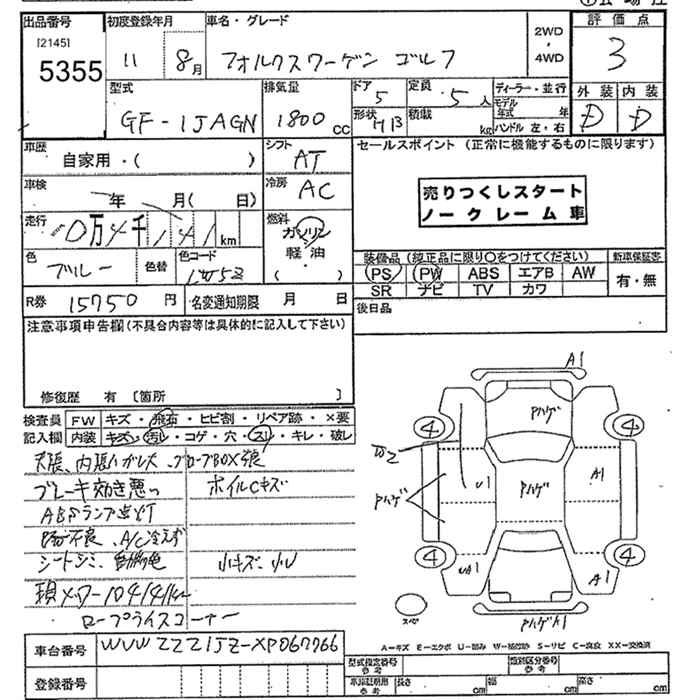 出品番号 初度登録年月 車名・グレード 2WD・4WD 評価点
[2145]
5355 11 8月 フォルクスワーゲン ゴルフ 3
型式 排気量 ドア 5 定員 5人 ディーラー・並行 外装 内装
GF-1JAGN 1800cc 形状 積載 kg モデル年式 年 ハンドル 左・右 D D
車歴 シフト セールスポイント (正常に機能するものに限ります)
自家用・( ) AT
車検 年 月( 日) 冷房 AC
売りつくしスタート
ノークレーム車
走行 10万4千141km 燃料 ガソリン
軽油
( )
色 ブルー 色替 色コード
装備品 (純正品に限り○をつけてください) 新車保証書
PS PW ABS エアB AW 有・無
SR ナビ TV カワ
R券 15750円 名変通知期限 月 日
後日品
注意事項申告欄(不具合内容等は具体的に記入して下さい)
修復歴 有 [箇所 ]
検査員 FW キズ・飛石・ヒビ割・リペア跡・×要
記入欄 内装 キズ・汚レ・コゲ・穴・スレ・キレ・破レ
天張、内張ハガレ大
ブレーキ効き悪い ホイルCキズ
ABSランプ点灯
不良、A/C冷えず
シートシミ、 小キズ・小U
現メーター104141km
ロープライスコーナー
A1
Pハゲ
4 4
W2
U1 Pハゲ A1
Pハゲ
4 4
UA1 A1
スペア Pハゲ A1
A-キズ E-エクボ U-凹み W-補修跡 S-サビ C-腐食 XX-交換済
車台番号 WVWZZZ1JZ-XP067766
登録番号
型式指定番号 参考 類別区分番号 参考
車庫証明用 参考 長さ cm 幅 cm 高さ cm